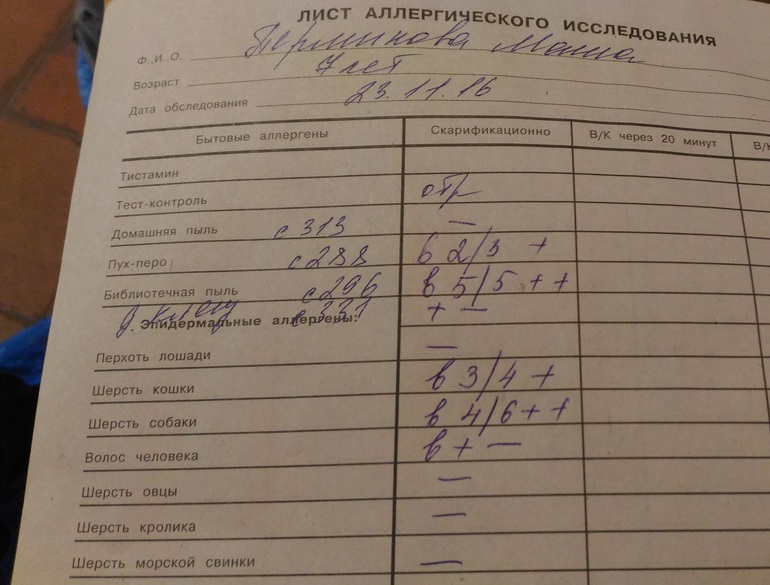 ЛИСТ АЛЛЕРГИЧЕСКОГО ИССЛЕДОВАНИЯ
Ф.,И.,О. Перминова Маша
Возраст 7 лет
Дата обследования 23.11.16
Бытовые аллергены Скарификационно В/К через 20 минут
Тистамин
Тест-контроль отр
Домашняя пыль с 313 —
Пух-перо с 288 в 2/3 +
Библиотечная пыль с 296 в 5/5 + +
д. клещ 331 + —
Эпидермальные аллергены:
Перхоть лошади —
Шерсть кошки в 3/4 +
Шерсть собаки в 4/6 + +
Волос человека в + —
Шерсть овцы —
Шерсть кролика —
Шерсть морской свинки —